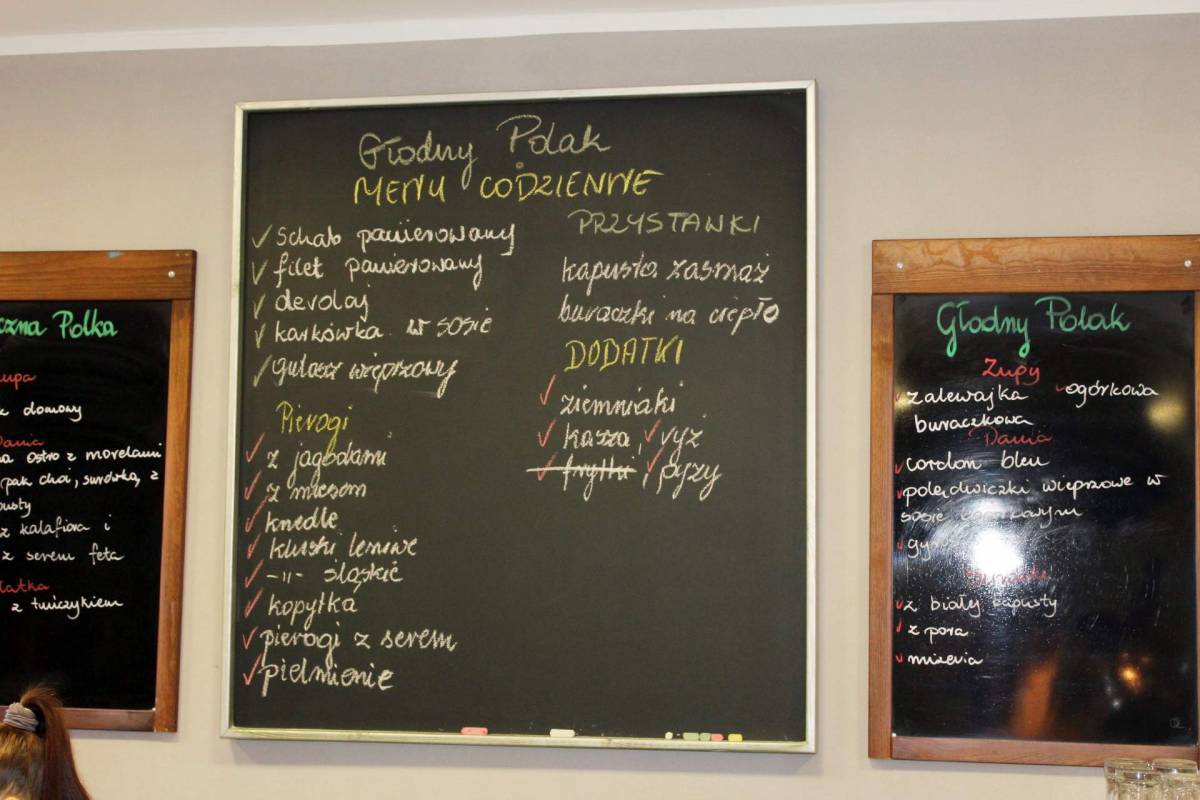 czna Polka
upa
domowy
Dania
na ostro z morelami
pak choi, surówka, z
pusty
z kalafiora i
z serem feta
łatka
z tuńczykiem
Głodny Polak
MENU CODZIENNE
schab panierowany
filet panierowany
devolaj
karkówka w sosie
gulasz wieprzowy
Pierogi
z jagodami
z mięsem
knedle
kluski leniwe
-11- śląskie
kopytka
pierogi z serem
pielmienie
PRZYSTAWKI
kapusta zasmaż
buraczki na ciepło
DODATKI
ziemniaki
kasza, ryż
frytki, pyzy
Głodny Polak
Zupy
zalewajka ogórkowa
buraczkowa
Dania
cordon bleu
polędwiczki wieprzowe w
sosie
gy
z białej kapusty
z pora
mizeria